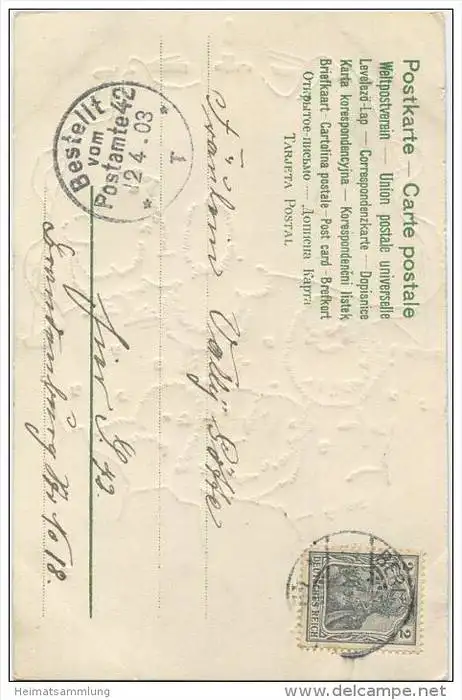 Postkarte — Carte postale
Weltpostverein — Union postale universelle
Levelező-Lap — Correspondenzkarte — Dopisnice
Karta korespondencyjna — Korespondenční lístek
Briefkaart - Cartolina postale - Post card - Brefkort
Открытое-письмо — Дописна Карта
TARJETA POSTAL
Bestellt
vom
Postamte 42
12 4. 03
1
BERLIN
2 2
DEUTSCHES REICH
Fräulein Vally
hier S. 42
Brandenburg Str No 18.
Heimatsammlung
delcampe.net